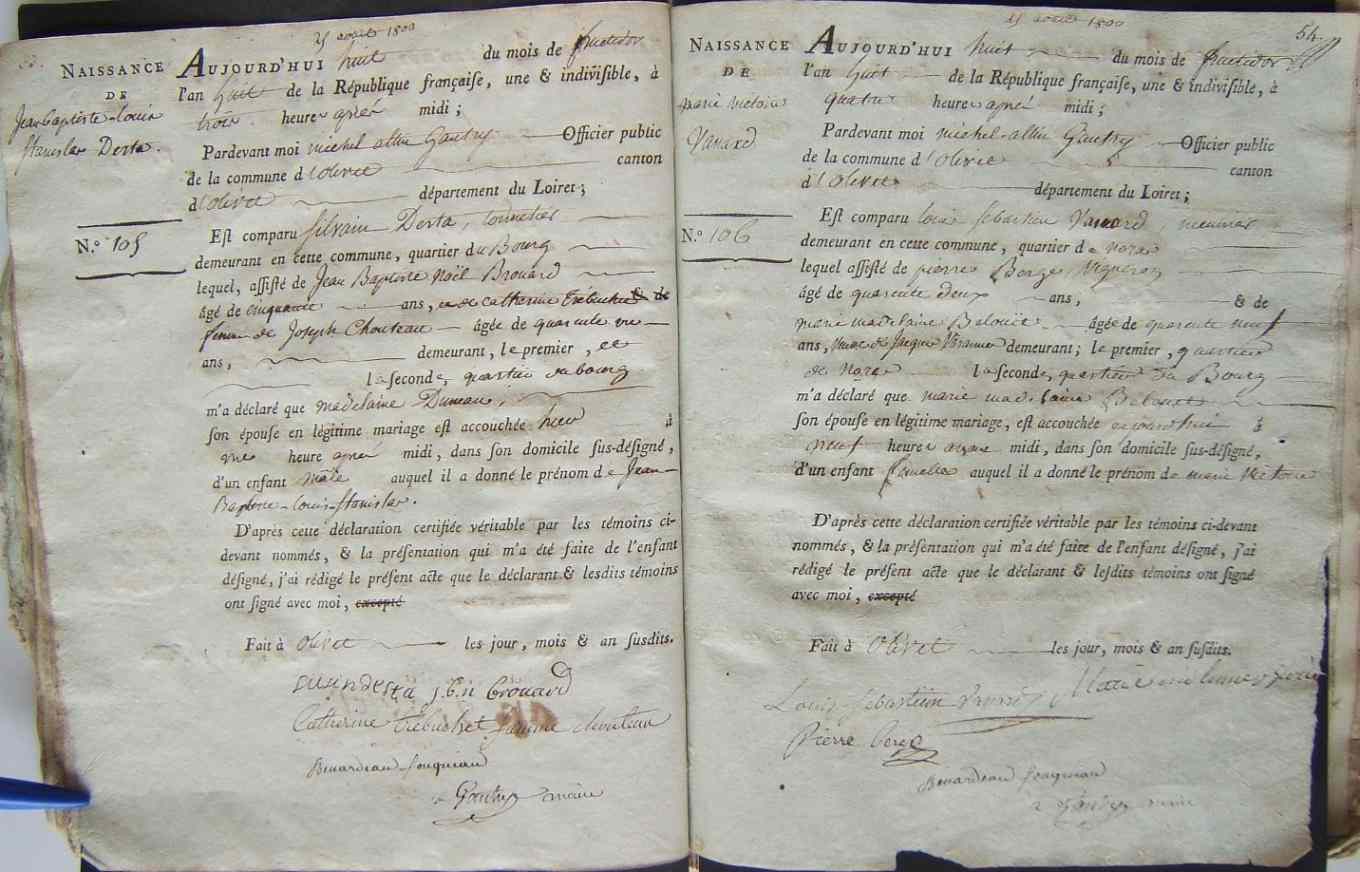 25 aout 1800
NAISSANCE
DE
Jean Baptiste-Louis
Stanislas Desta.
N.º 105
AUJOURD'HUI huit du mois de fructidor
l'an huit de la République françaiſe, une & indiviſible, à
trois heures aprés midi ;
Pardevant moi michel-altin Gautry Officier public
de la commune d'Olivet canton
d'Olivet département du Loiret ;
Eſt comparu Silvain Desta,
demeurant en cette commune, quartier du Bourg
lequel, aſſiſté de Jean Baptiste Noël Brouard
âgé de cinquante ans, et de catherine Trébuchet & de
femme de Joseph Chouteau âgée de quarente une
ans, demeurant, le premier, et
la ſeconde, quartier du bourg
m'a déclaré que madelaine Duneau,
ſon épouſe en légitime mariage eſt accouchée hier à
une heure aprés midi, dans ſon domicile ſus-déſigné,
d'un enfant mâle auquel il a donné le prénom de Jean
Baptiste-Louis-Stanislas.
D'après cette déclaration certifiée véritable par les témoins ci-
devant nommés, & la préſentation qui m'a été faite de l'enfant
déſigné, j'ai rédigé le préſent acte que le déclarant & leſdits témoins
ont ſigné avec moi, excepté
Fait à Olivet les jour, mois & an ſusdits.
j.b.n brouard
Catherine trebuchet famme chouteau
Gautry maire
25 aout 1800
54.
NAISSANCE
DE
marie victoire
Vanard
N.º 106
AUJOURD'HUI huit du mois de fructidor
l'an huit de la République françaiſe, une & indiviſible, à
quatre heures aprés midi ;
Pardevant moi michel-altin Gautry Officier public
de la commune d'Olivet canton
d'Olivet département du Loiret ;
Eſt comparu Louis Sébastien Vanard, meunier
demeurant en cette commune, quartier de
lequel aſſiſté de pierre Berge Vigneron
âgé de quarente deux ans, & de
marie madelaine Belouet âgée de quarente neuf
ans, demeurant ; le premier, quartier
de la ſeconde, quartier du Bourg
m'a déclaré que marie madelaine Belouet
ſon épouſe en légitime mariage, eſt accouchée aujourdhui à
neuf heures avant midi, dans ſon domicile ſus-déſigné,
d'un enfant femelle auquel il a donné le prénom de marie Victoire
D'après cette déclaration certifiée véritable par les témoins ci-devant
nommés, & la préſentation qui m'a été faite de l'enfant déſigné, j'ai
rédigé le préſent acte que le déclarant & leſdits témoins ont ſigné
avec moi, excepté
Fait à Olivet les jour, mois & an ſuſdits.
Louis Sebastien
Pierre berge
Gautry maire